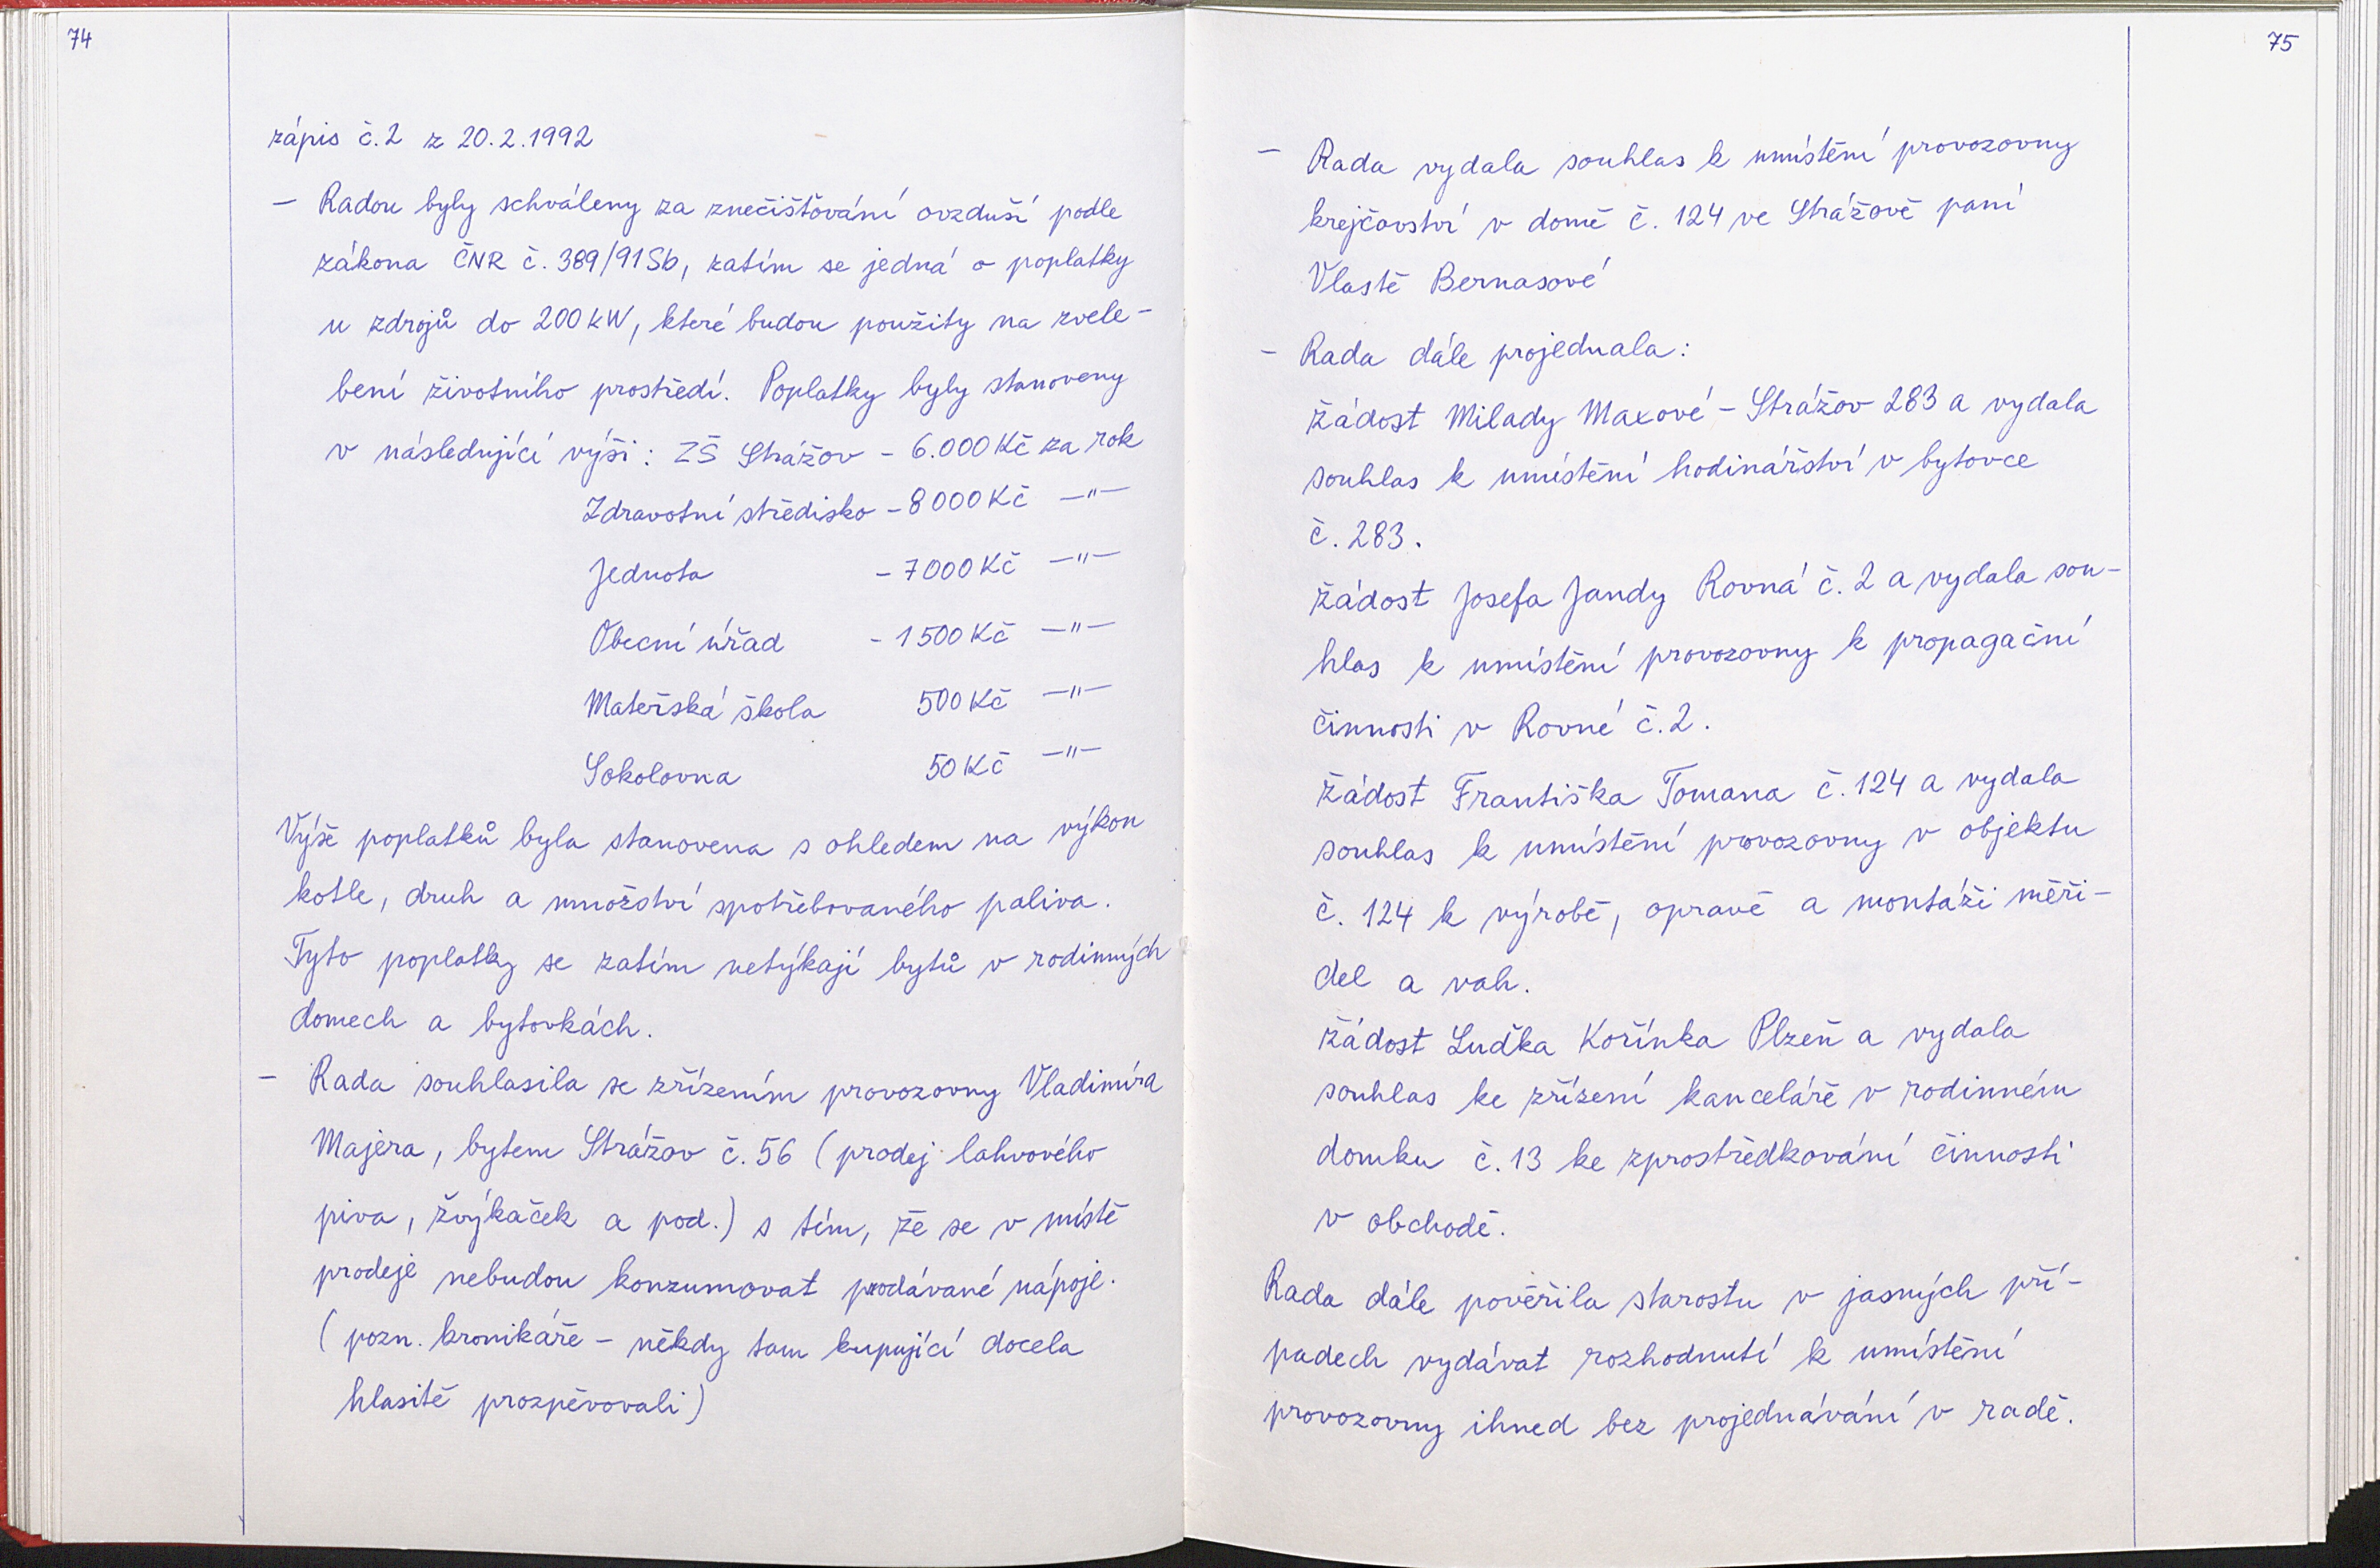 74
zápis č.2 z 20.2.1992
- Radou byly schváleny za znečišťování ovzduší podle
zákona ČNR č. 389/91Sb, zatím se jedná o poplatky
u zdrojů do 200 kW, které budou použity na zvele-
bení životního prostředí. Poplatky byly stanoveny
v následující výši: ZŠ Strážov - 6.000 Kč za rok
Zdravotní středisko - 8000 Kč —"—
Jednota - 7000 Kč —"—
Obecní úřad - 1500 Kč —"—
Mateřská škola 500 Kč —"—
Sokolovna 50 Kč —"—
Výše poplatků byla stanovena s ohledem na výkon
kotle, druh a množství spotřebovaného paliva.
Tyto poplatky se zatím netýkají bytů v rodinných
domech a bytovkách.
- Rada souhlasila se zřízením provozovny Vladimíra
Majera, bytem Strážov č. 56 (prodej lahvového
piva, žvýkaček a pod.) s tím, že se v místě
prodeje nebudou konzumovat prodávané nápoje.
(pozn. kronikáře - někdy tam kupující docela
hlasitě prozpěvovali)
75
- Rada vydala souhlas k umístění provozovny
krejčovství v domě č. 124 ve Strážově paní
Vlastě Bernasové
- Rada dále projednala:
žádost Milady Maxové - Strážov 283 a vydala
souhlas k umístění hodinářství v bytovce
č. 283.
žádost Josefa Jandy Rovná č. 2 a vydala sou-
hlas k umístění provozovny k propagační
činnosti v Rovné č.2.
žádost Františka Tomana č. 124 a vydala
souhlas k umístění provozovny v objektu
č. 124 k výrobě, opravě a montáži měři-
del a vah.
žádost Luďka Kořínka Plzeň a vydala
souhlas ke zřízení kanceláře v rodinném
domku č. 13 ke zprostředkování činnosti
v obchodě.
Rada dále pověřila starostu v jasných pří-
padech vydávat rozhodnutí k umístění
provozovny ihned bez projednávání v radě.